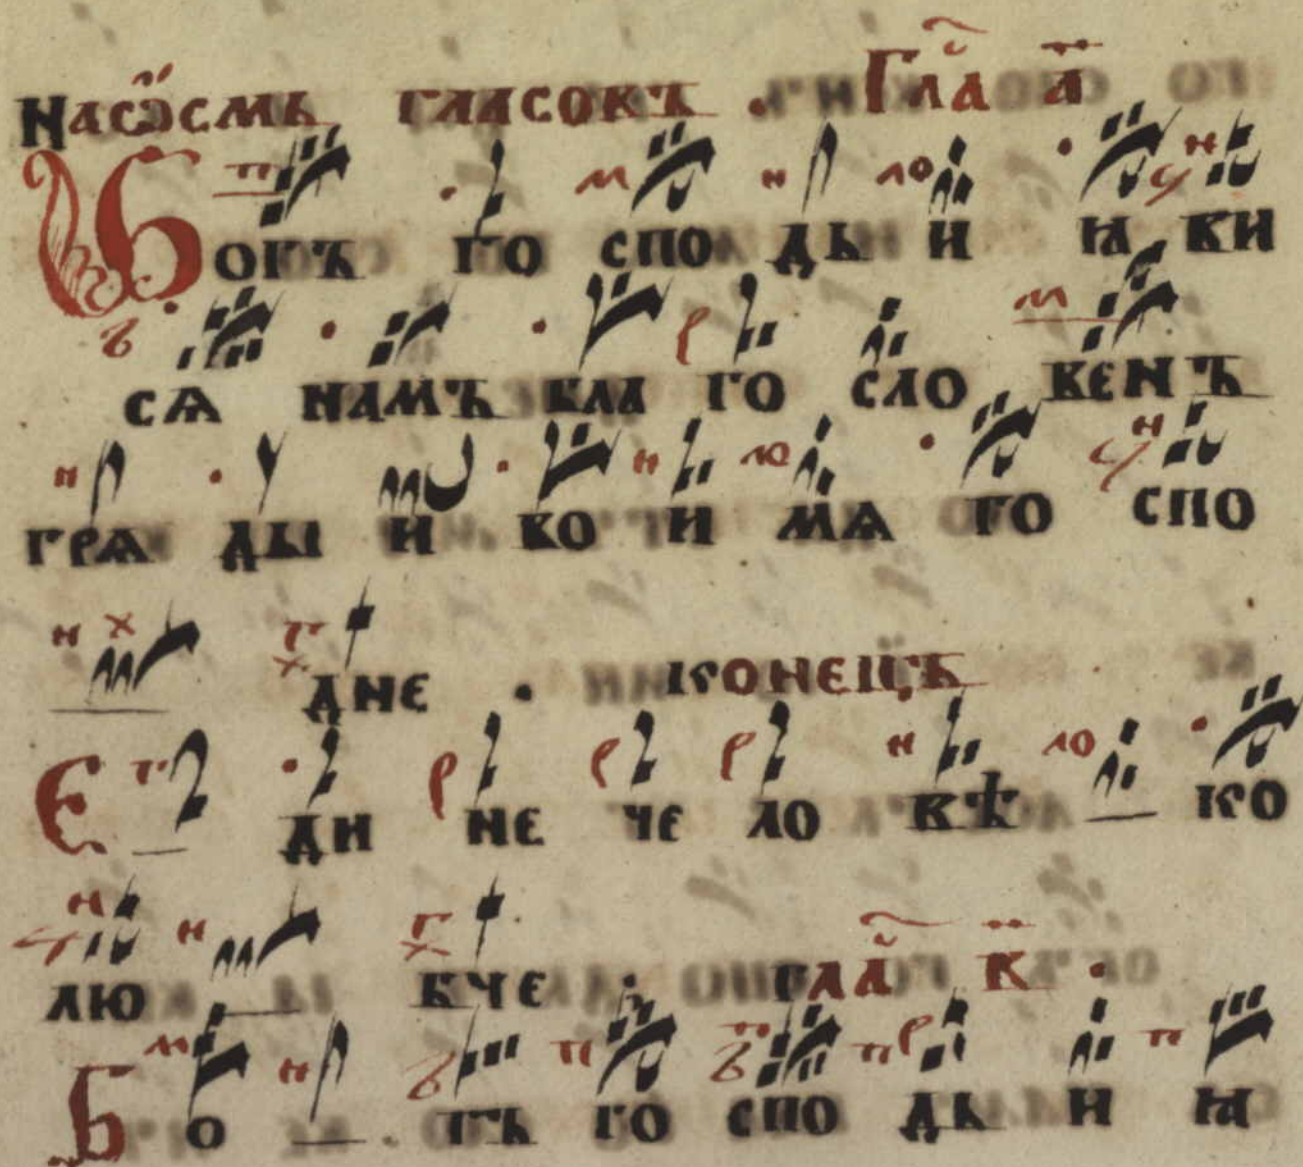 На ѻсмь гласовъ . Гла҃ а҃
Богъ го спо дь и ꙗ ви
сѧ намъ бла го сло венъ
грѧ ды и во и мѧ го спо
дне . конецъ
Е ди не че ло вѣ ко
лю бче . гла҃ в҃ .
Б о гъ го спо дь и ꙗ